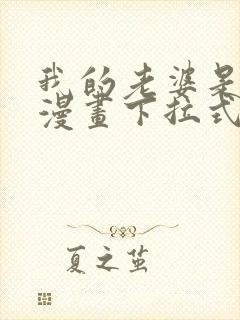 我的老婆是
漫畫下拉式
夏之茧